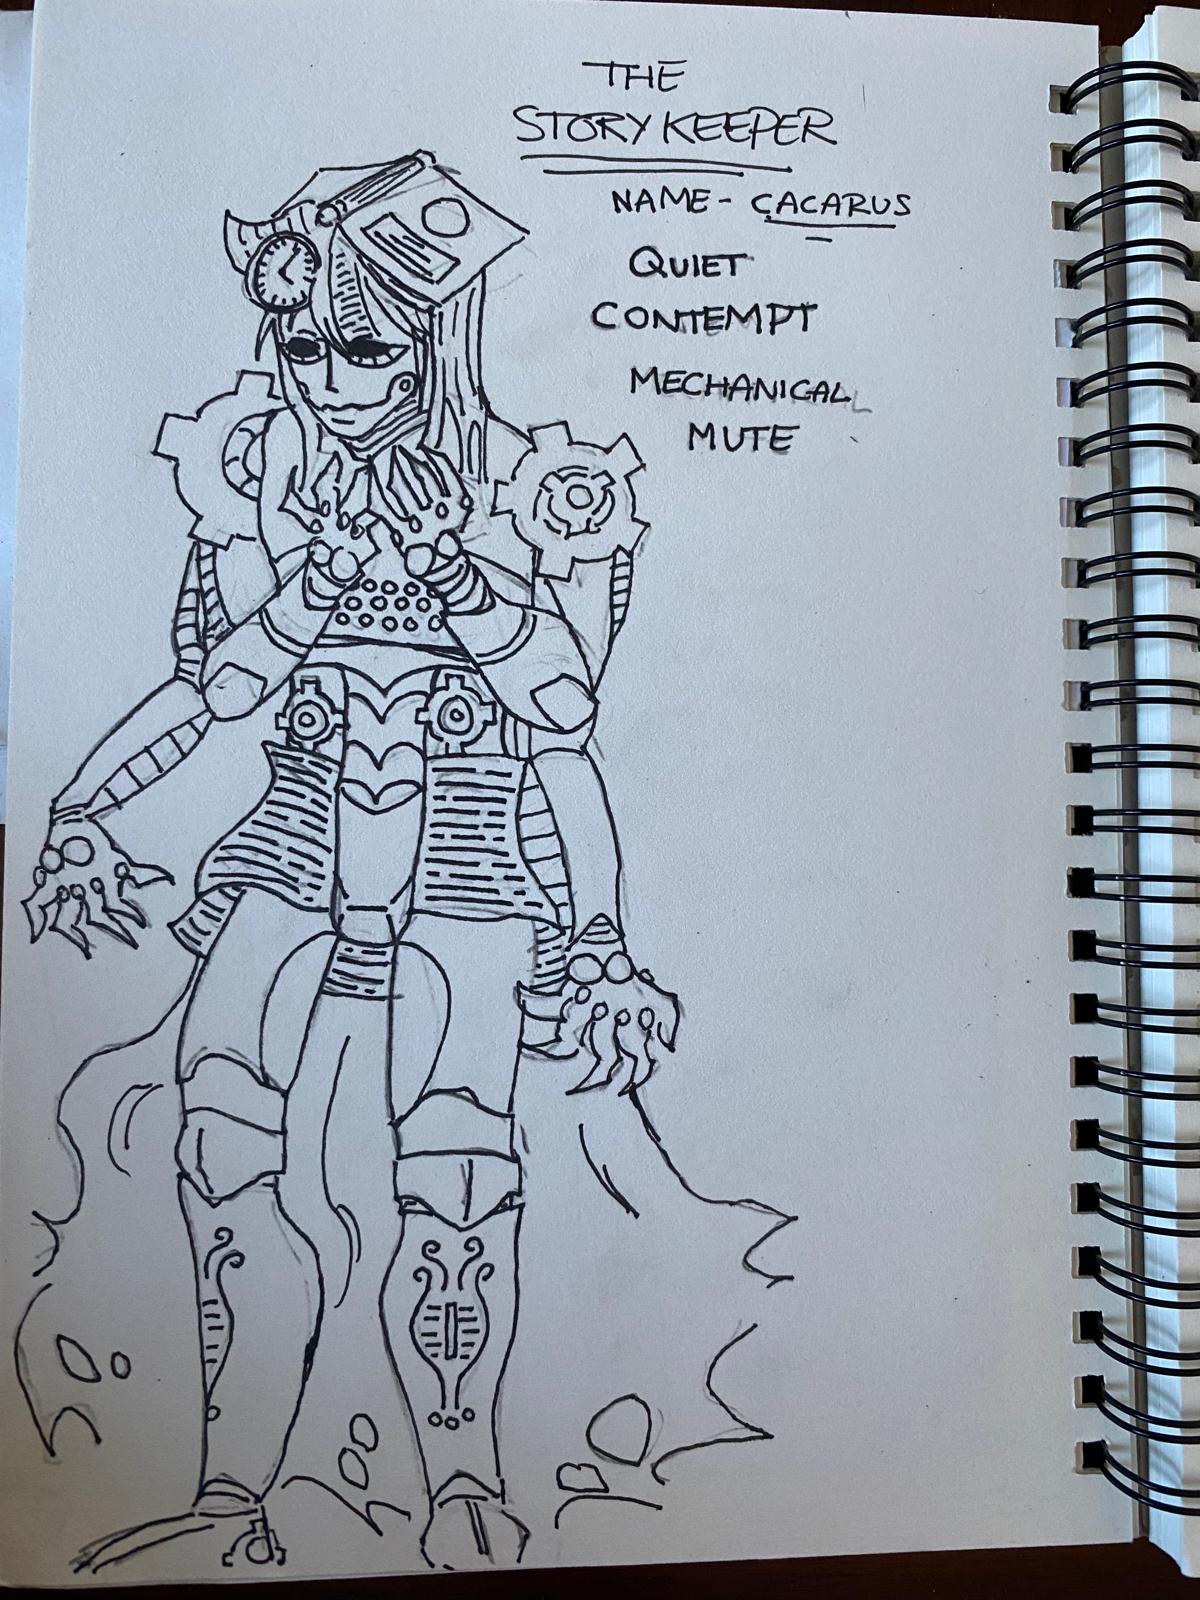 THE
STORY KEEPER
NAME - CACARUS
QUIET
CONTEMPT
MECHANICAL
MUTE